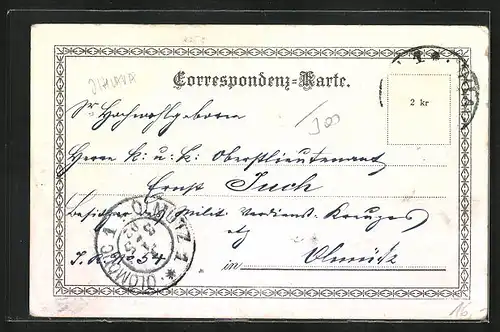 Correspondenz-Karte.
2 kr
Sr Hochwohlgeboren
Herrn k: u: k: Oberstlieutenant
Ernst Juch
Besitzer des Milit. Verdienst Kreuzes
etz
I. R. No 54
in Olmütz
OLMÜTZ 1 * OLOMOUC 1 *
16.-